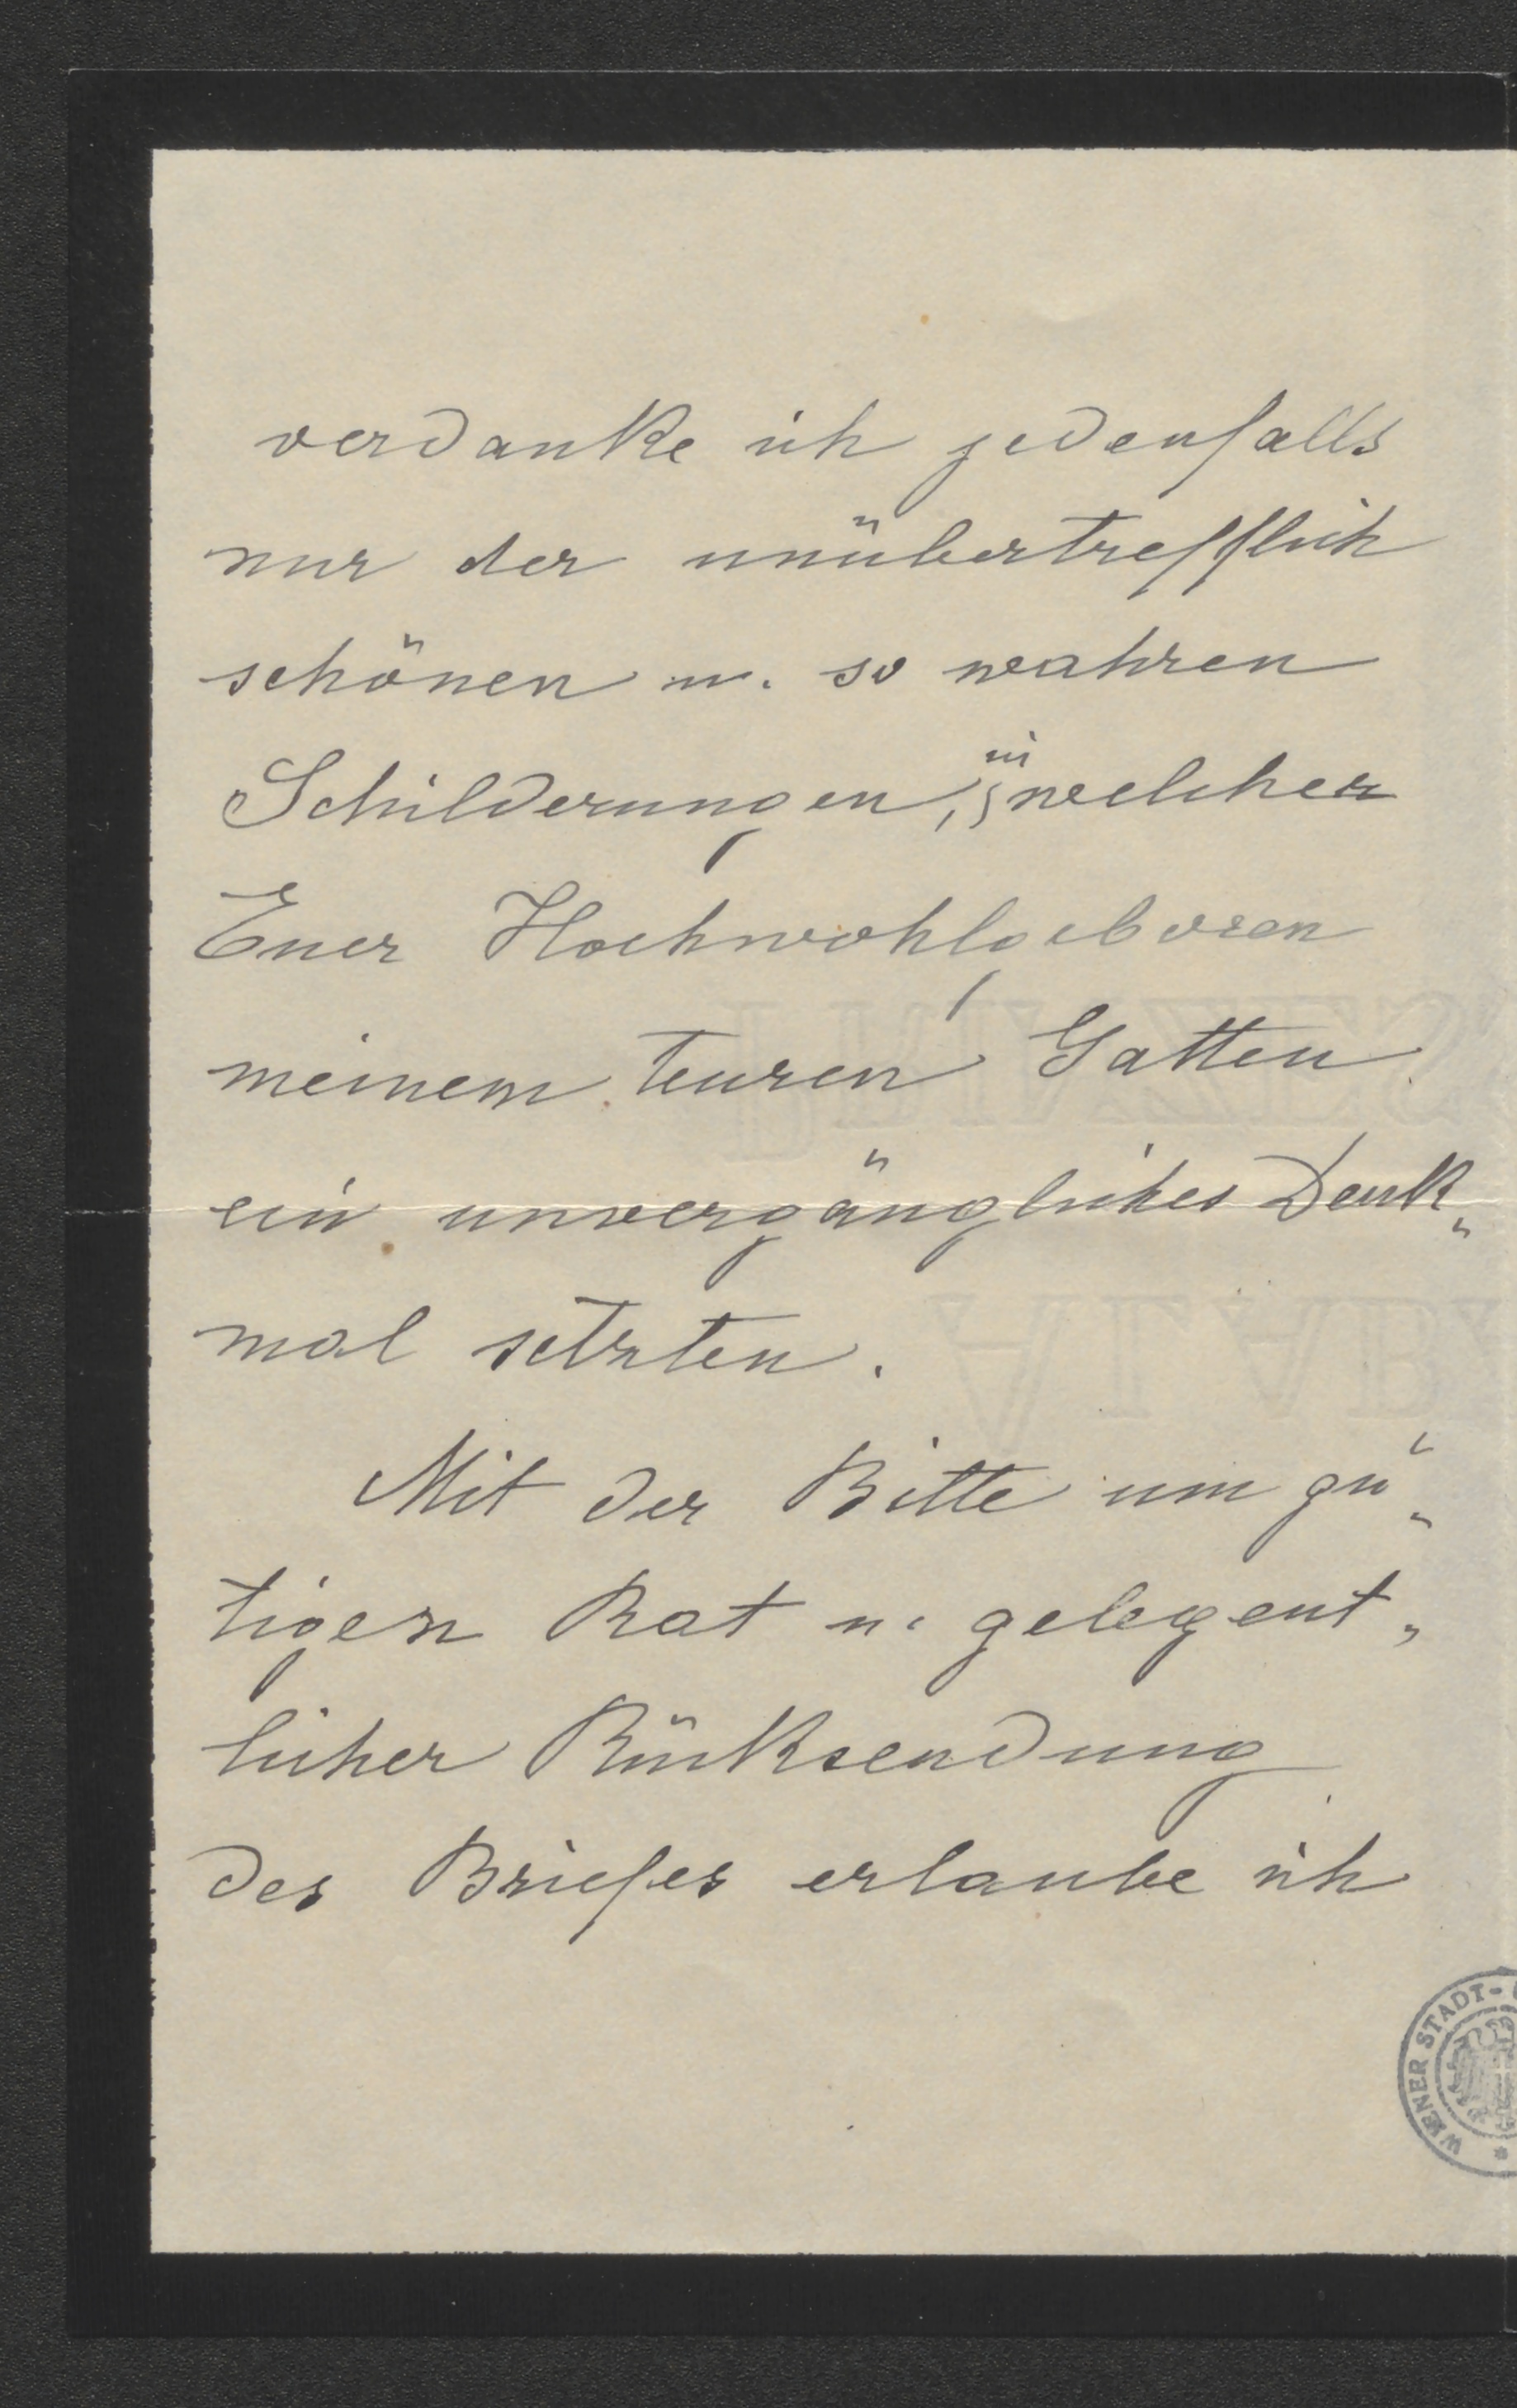 verdanke ich jedenfalls
nur der unübertrefflich
schönen u. so wahren
Schilderungen, in welcher
Euer Hochwohlgeboren
meinem teuren Gatten
ein unvergängliches Denk„
mal setzten.
Mit der Bitte um gü„
tigen Rat u. gelegent„
licher Rücksendung
des Briefes erlaube ich
WIENER STADT-